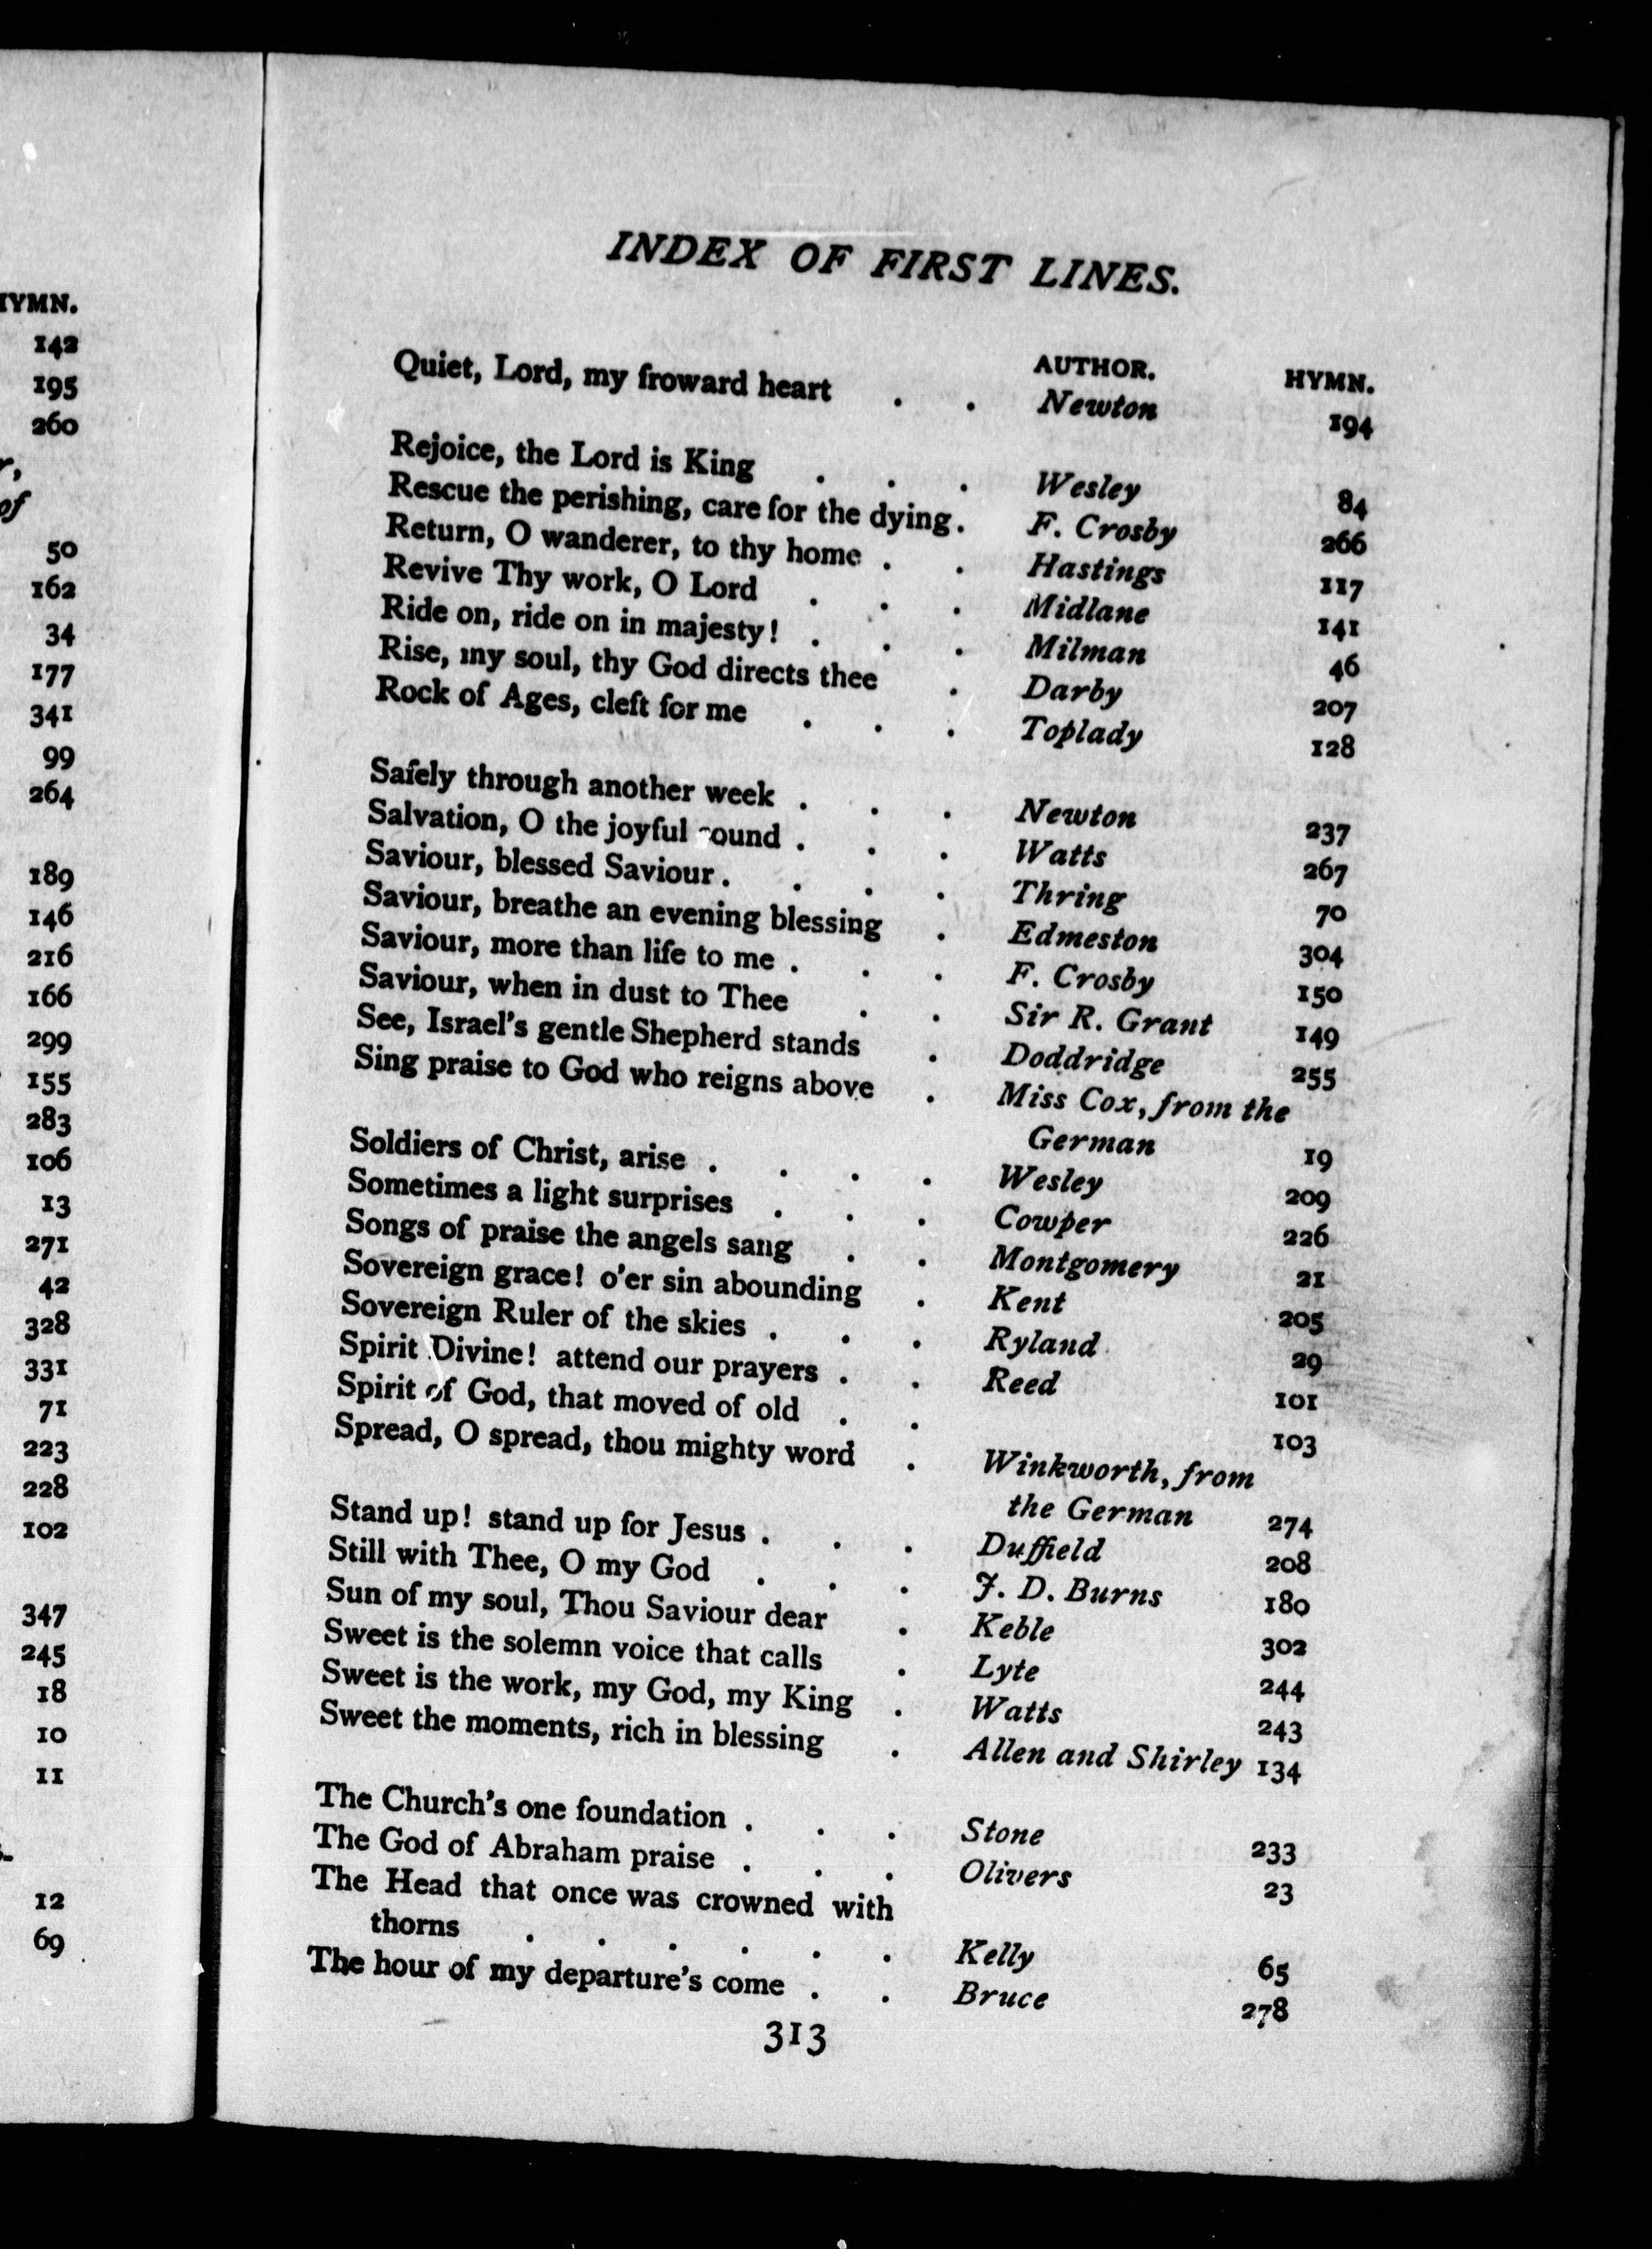 HYMN.
142
195
260
r,
of
50
162
34
177
341
99
264
189
146
216
166
299
155
283
106
13
271
42
328
331
71
223
228
102
347
245
18
10
11
12
69
INDEX OF FIRST LINES.
AUTHOR. HYMN.
Quiet, Lord, my froward heart . . Newton 194
Rejoice, the Lord is King . . . Wesley 84
Rescue the perishing, care for the dying. F. Crosby 266
Return, O wanderer, to thy home . . Hastings 117
Revive Thy work, O Lord . . . Midlane 141
Ride on, ride on in majesty! . . . Milman 46
Rise, my soul, thy God directs thee . Darby 207
Rock of Ages, cleft for me . . . Toplady 128
Safely through another week . . . Newton 237
Salvation, O the joyful sound . . . Watts 267
Saviour, blessed Saviour . . . . Thring 70
Saviour, breathe an evening blessing . Edmeston 304
Saviour, more than life to me . . . F. Crosby 150
Saviour, when in dust to Thee . . Sir R. Grant 149
See, Israel's gentle Shepherd stands . Doddridge 255
Sing praise to God who reigns above . Miss Cox, from the
German 19
Soldiers of Christ, arise . . . . Wesley 209
Sometimes a light surprises . . . Cowper 226
Songs of praise the angels sang . . Montgomery 21
Sovereign grace! o'er sin abounding . Kent 205
Sovereign Ruler of the skies . . . Ryland 29
Spirit Divine! attend our prayers . . Reed 101
Spirit of God, that moved of old . . 103
Spread, O spread, thou mighty word . Winkworth, from
the German 274
Stand up! stand up for Jesus . . . Duffield 208
Still with Thee, O my God . . . J. D. Burns 180
Sun of my soul, Thou Saviour dear . Keble 302
Sweet is the solemn voice that calls . Lyte 244
Sweet is the work, my God, my King . Watts 243
Sweet the moments, rich in blessing . Allen and Shirley 134
The Church's one foundation . . . Stone 233
The God of Abraham praise . . . Olivers 23
The Head that once was crowned with
thorns . . . . . . Kelly 65
The hour of my departure's come . . Bruce 278
313